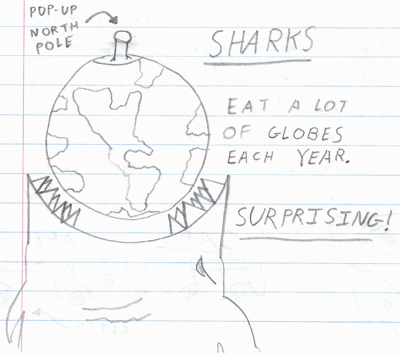 POP-UP
NORTH
POLE
SHARKS
EAT A LOT
OF GLOBES
EACH YEAR.
SURPRISING!